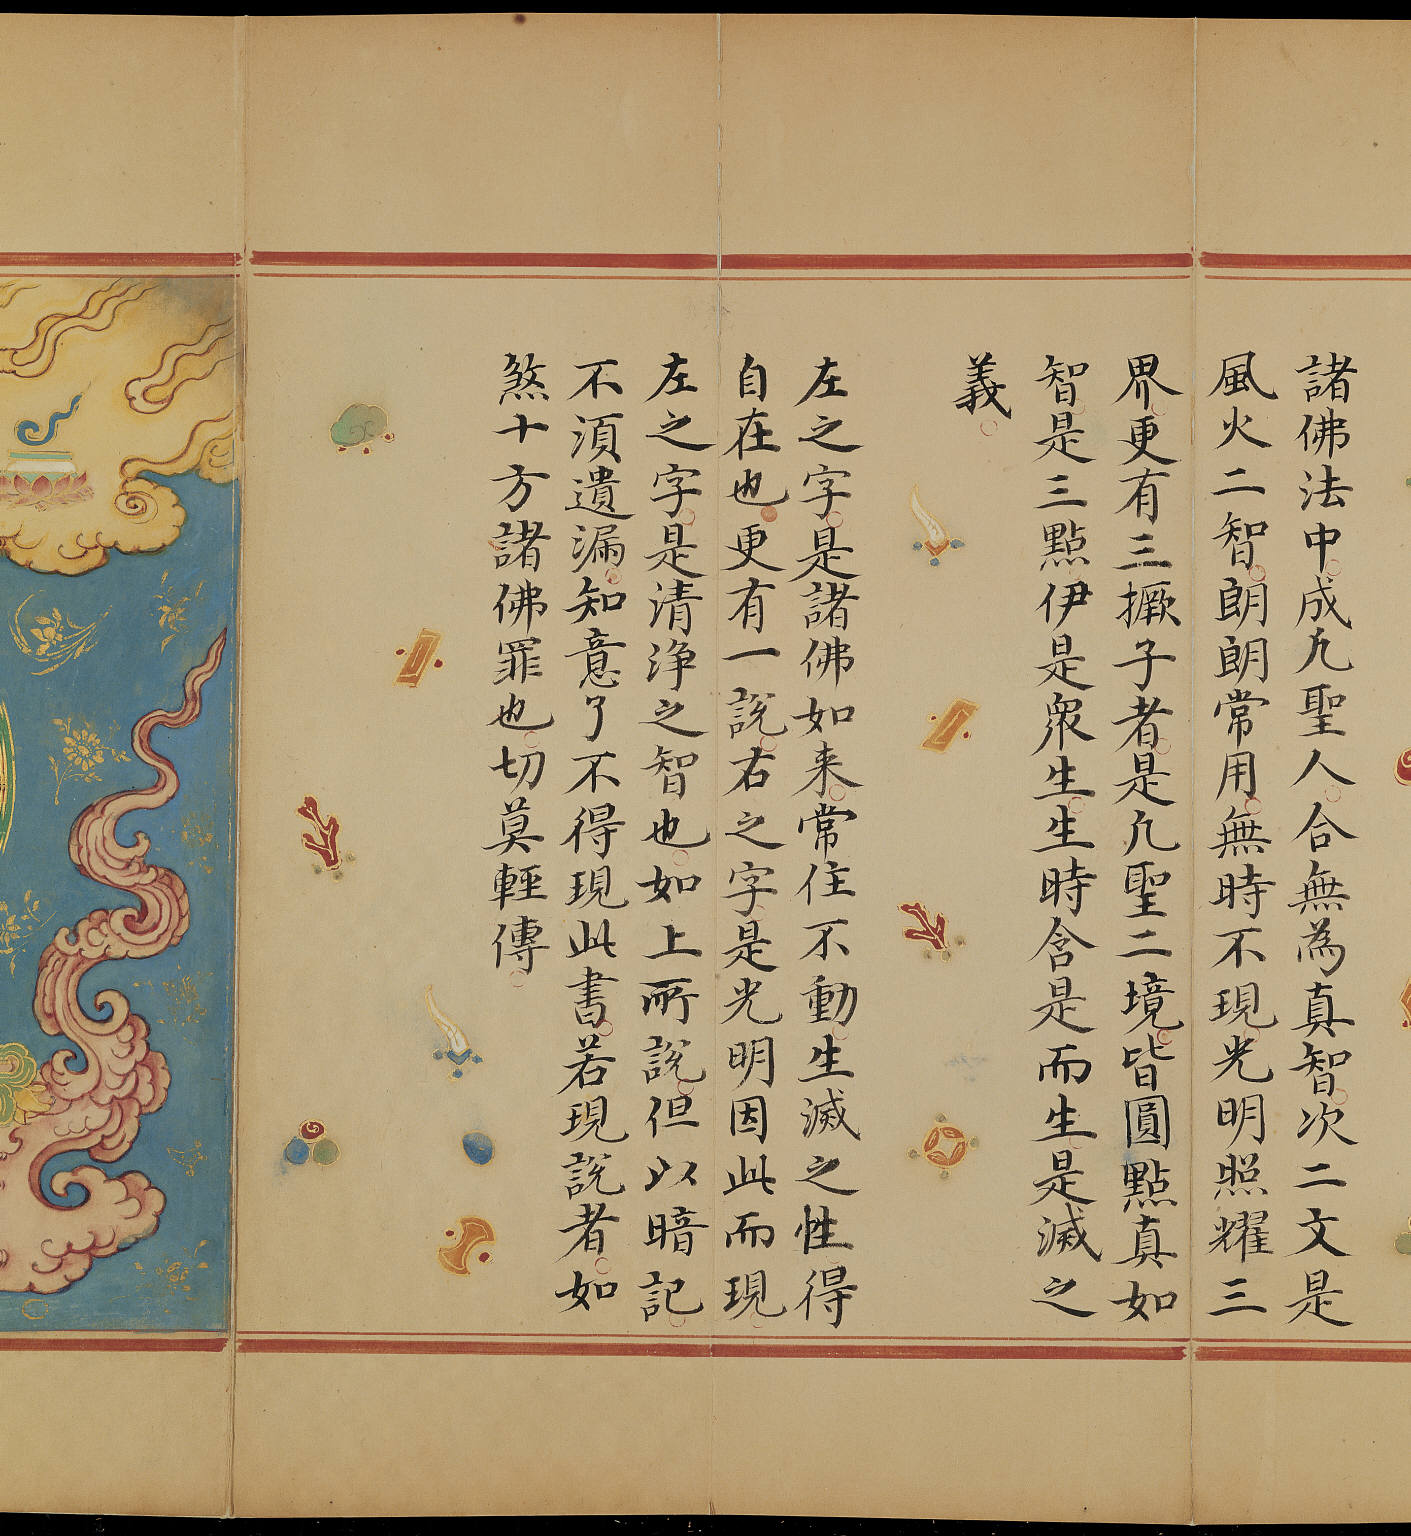 諸佛法中成凢聖人合無為真智次二文是
風火二智朗朗常用無時不現光明照耀三
界更有三橛子者是凢聖二境皆圓點真如
智是三點伊是衆生生時含是而生是滅之
義
左之字是諸佛如来常住不動生滅之性得
自在也更有一説右之字是光明因此而現
左之字是清浄之智也如上所説但以暗記
不湏遺漏知意了不得現此書若現説者如
煞十方諸佛罪也切莫輕傳